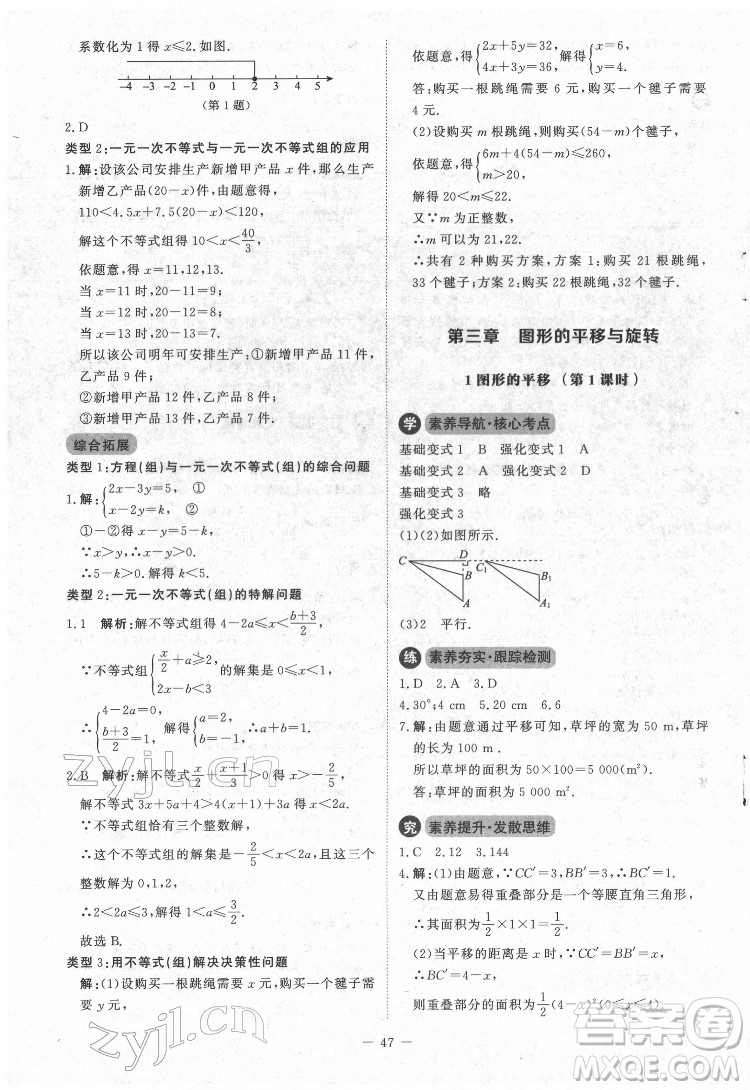 系数化为1得x≤2.如图.
-4 -3 -2 -1 0 1 2 3 4 5
(第1题)
2.D
类型2:一元一次不等式与一元一次不等式组的应用
1.解:设该公司安排生产新增甲产品x件,那么生产
新增乙产品(20-x)件,由题意得,
110<4.5x+7.5(20-x)<120,
解这个不等式组得10<x<40/3,
依题意,得x=11,12,13.
当x=11时,20-11=9;
当x=12时,20-12=8;
当x=13时,20-13=7;
所以该公司明年可安排生产:①新增甲产品11件,
乙产品9件;②新增甲产品12件,乙产品8件;
③新增甲产品13件,乙产品7件.
综合拓展
类型1:方程(组)与一元一次不等式(组)的综合问题
1.解:{2x-3y=5, ①
x-2y=k, ②
①-②得x-y=5-k,
∵x>y,∴x-y>0.
∴5-k>0.解得k<5.
类型2:一元一次不等式(组)的特解问题
1.1 解析:解不等式组得4-2a≤x<(b+3)/2,
∵不等式组{x/2+a≥2,
2x-b<3
的解集是0≤x<1,
∴{4-2a=0,
(b+3)/2=1,
解得{a=2,
b=-1.
∴a+b=1.
2.B 解析:解不等式x/2+(x+1)/3>0得x>-2/5,
解不等式3x+5a+4>4(x+1)+3a得x<2a.
∵不等式组恰有三个整数解,
∴这个不等式组的解集为-2/5<x<2a,且三个整数
解为0,1,2,
∴2<2a≤3.解得1<a≤3/2.
故选B.
类型3:用不等式(组)解决决策性问题
解:(1)设购买一根跳绳需要x元,购买一个毽子需
要y元,
依题意,得{2x+5y=32,
4x+3y=36,
解得{x=6,
y=4.
答:购买一根跳绳需要6元,购买一个毽子需要
4元.
(2)设购买m根跳绳,则购买(54-m)个毽子,
依题意,得{6m+4(54-m)≤260,
m>20,
解得20<m≤22.
又∵m为正整数,
∴m可以为21,22.
∴共有2种购买方案,方案1:购买21根跳绳,
33个毽子;方案2:购买22根跳绳,32个毽子.
第三章 图形的平移与旋转
1图形的平移(第1课时)
学 素养导航·核心考点
基础变式1 B 强化变式1 A
基础变式2 C 强化变式2 D
基础变式3 略
强化变式3
(1)(2)如图所示.
C D B A C1 B1 A1
(3)2 平行.
练 素养夯实·跟踪检测
1.D 2.A 3.D
4.30°;4 cm 5.20 cm 6.6
7.解:由题意通过平移可知,草坪的宽为50 m,草坪
的长为100 m.
所以草坪的面积为50×100=5 000(m²).
答:草坪的面积为5 000 m².
究 素养提升·发散思维
1.C 2.12 3.144
4.解:(1)由题意,∵CC′=3,BB′=3,∴BC′=1.
又由题意易得重叠部分是一个等腰直角三角形,
∴其面积为1/2×1×1=1/2.
(2)当平移的距离是x时,∵CC′=BB′=x,
∴BC′=4-x,
则重叠部分的面积为1/2(4-x)²(0≤x≤4).
47
zyjl.cn
zyjl.cn
答案圈
MXQE.COM